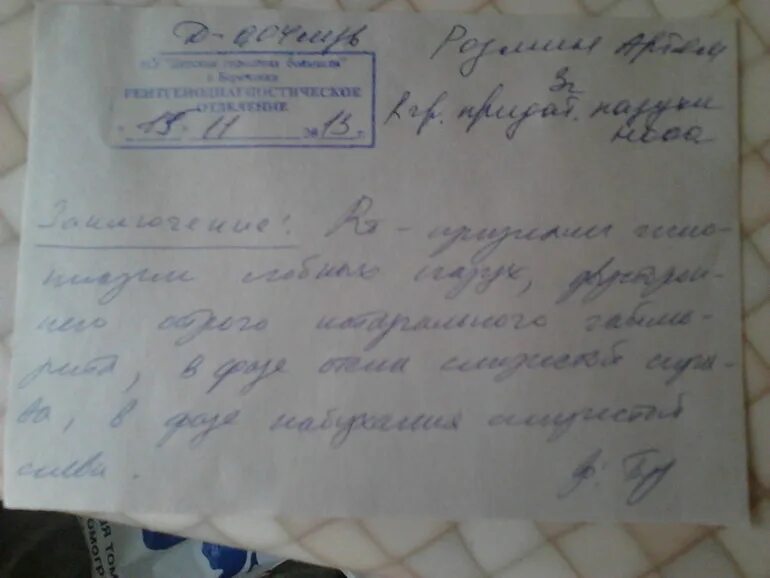 Д-0,04 мзв
МУЗ "Детская городская больница"
г. Воронежа
РЕНТГЕНОДИАГНОСТИЧЕСКОЕ
ОТДЕЛЕНИЕ
15 11 №13 г.
Артем
3г
Rгр. придат. пазухи
носа
Заключение: Rт - признаки гипо-
плазии лобных пазух, двусторон-
него острого катарального гаймо-
рита, в фазе отека слизистой спра-
ва, в фазе набухания слизистой
слева.